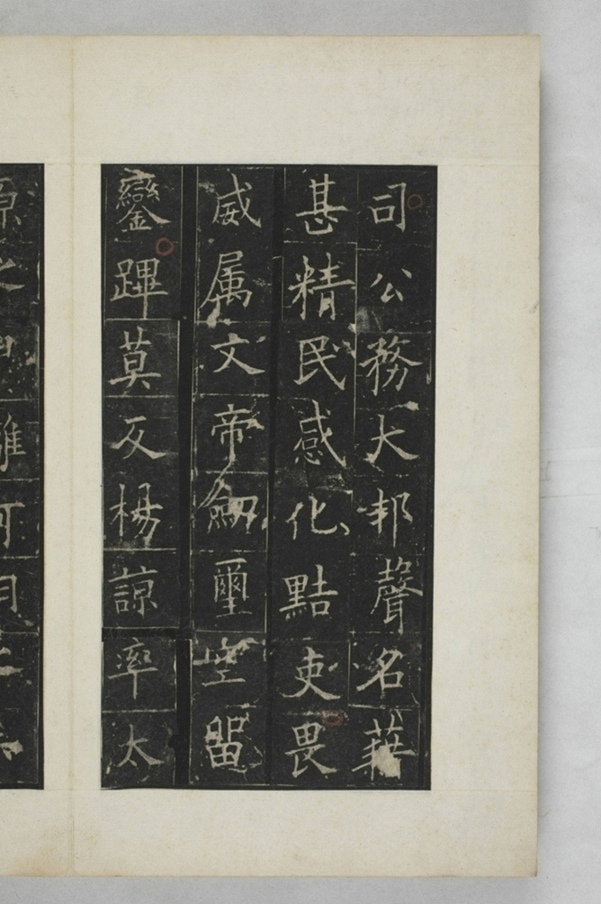 司公務大邦聲名華
甚精民感化黠吏畏
威属文帝劒璽空留
鑾蹕莫反楊諒率太